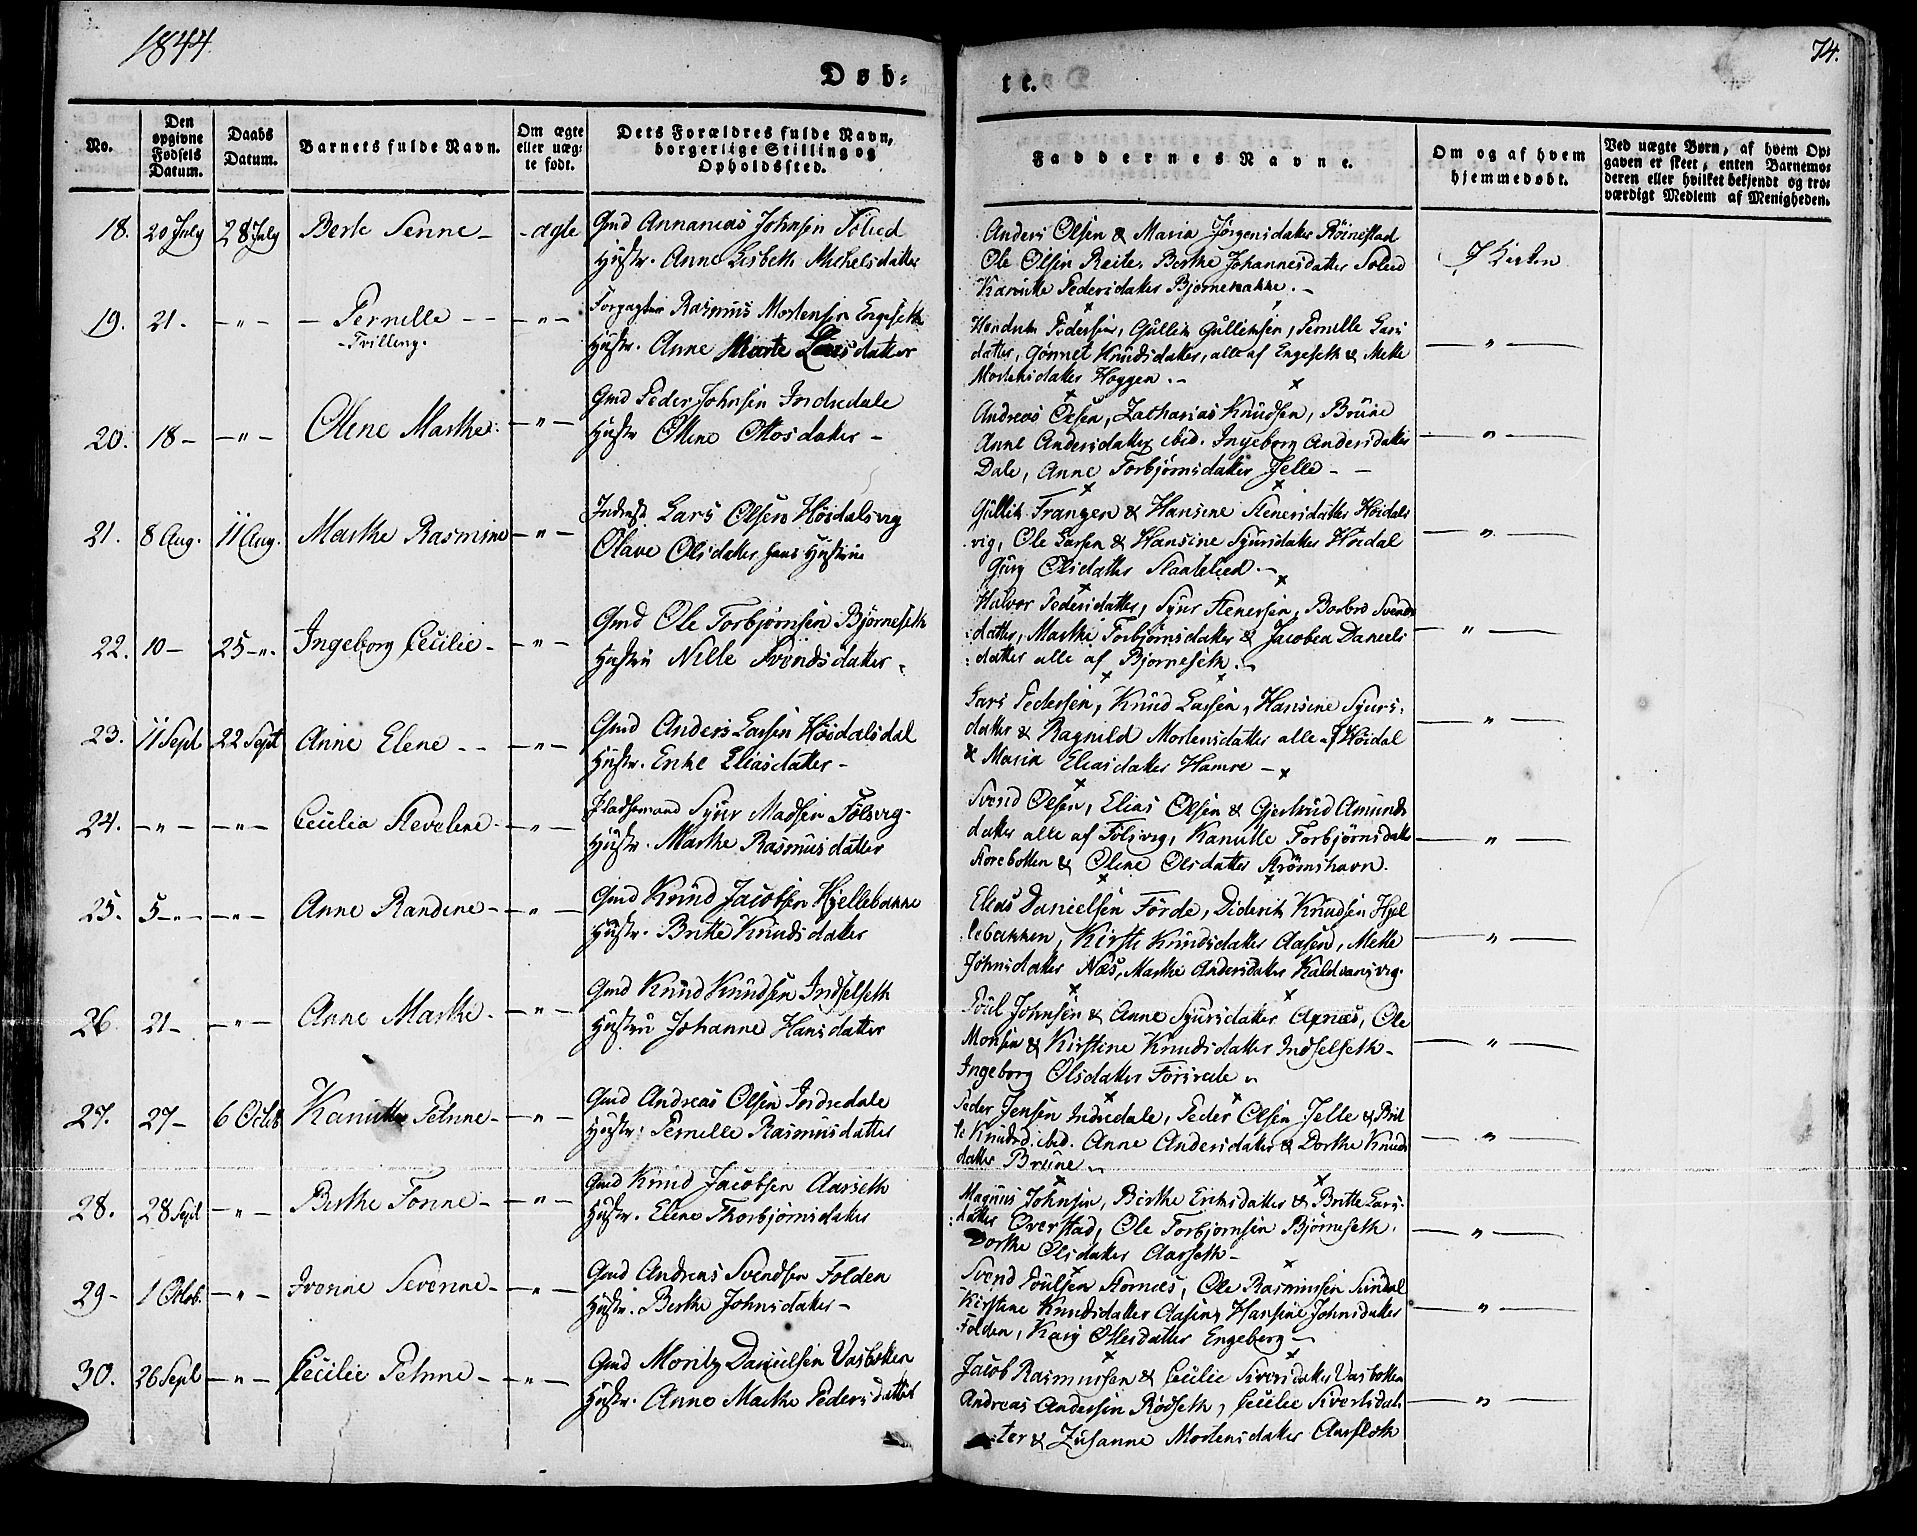 1844.
74.
Døb-
te.
No.
Den opgivne Fødsels Datum.
Daabs Datum.
Barnets fulde Navn.
Om ægte eller uægte født.
Dets Forældres fulde Navn, borgerlige Stilling og Opholdssted.
Faddernes Navne.
Om og af hvem hjemmedøbt.
Ved uægte Børn, af hvem Opgaven er skeet, enten Barnemoderen eller hvilket bekjendt og troværdigt Medlem af Menigheden.
18. 20 July 28 July Berte Senne - - ægte
Gmd Annanias Johnsen Solied
Hustr. Anne Lisbeth Michelsdatter
Anders Olsen & Maria Jörgensdatter Röinestad
Ole Olsen Reite, Berthe Johannesdatter Solied
Kanutte Pedersdatter Bjørnebakke. -
I Kirken
19. 21. - " - - Pernelle - - - " -
- Tvilling.
Forpagter Rasmus Mortensen Engeseth
Hustr. Anne Marte Larsdatter
Pedersen, Gullik Gulliksen, Pernille Lars
datter, Gönnet Knudsdatter, alle af Engeseth & Mette
Mortensdatter Hoggen. -
- " -
20. 18 - - " - Olene Marthe. - " -
Gmd Peder Johnsen Indredale
Hustr Oline Ottosdatter -
Andreas Olsen, Zacharias Knudsen, Brune
Anne Andersdatter ibid. Ingeborg Andersdatter
Dale, Anne Torbjørnsdatter Jelle - -
- " -
21. 8 Aug. 11 Aug. Marthe Rasmine - " -
Inderst Lars Olsen Höidalsvig
Olave Olsdatter hans Hustrue
Gullik Frangen & Hansine Stenersdatter Höidals
vig, Ole Larsen & Hansine Syursdatter Höidal
Gury Olsdatter Slaatelied. -
- " -
22. 10 - 25 - ". Ingeborg Cecilie - - " -
Gmd Ole Torbjørnsen Bjørneseth
Hustru Nille Svendsdatter -
Halvor Pedersdatter, Syur Stenersen, Barbro Svends
datter, Marthe Torbjørnsdatter & Jacobea Daniels
datter alle af Bjørneseth. -
- " -
23. 11 Sept 22 Sept Anne Elene - - - " -
Gmd Anders Larsen Höidalsdal
Hustr. Enke Eliasdatter -
Lars Pedersen, Knud Larsen, Hansine Syurs-
datter & Ragnild Mortensdatter alle af Höidal
& Maria Eliasdatter Hamre -
- " -
24. - " - - " - Cecilia Stevelene - - " -
Pladsemand Syur Madsen Fölsvig -
Hustr. Marthe Rasmusdatter
Svend Olsen, Elias Olsen & Gjertrud Amunds
datter alle af Fölsvig, Kanutte Torbjørnsdatt
Storebotten & Oline Olsdatter Strömshavn.
- " -
25. 5 - " - - " - Anne Randine - - " -
Gmd Knud Jacobsen Hjellebakke
Hustr. Britte Knudsdatter
Elias Danielsen Förde, Diderik Knudsen Hjel
lebakken, Kirsti Knudsdatter Aasen, Mette
Johnsdatter Næs, Marthe Andersdatter Kaldvansvig.
- " -
26. 21 - - " - Anne Marthe - - " -
Gmd Knud Knudsen Indselseth
Hustru Johanne Hansdatter
Poul Johnsen & Anne Syursdatter Apnæs, Ole
Monsen & Kirstine Knudsdatter Indselseth -
Ingeborg Olsdatter
- " -
27. 27 - 6 Octob Kanutte Petrine - - " -
Gmd Andreas Olsen Indredale
Hustr. Pernille Rasmusdatter
Peder Jensen Indredale, Peder Olsen Jelle & Brit
te Knudsd. ibid. Anne Andersdatter & Dorthe Knuds
datter Brune -
- " -
28. 28 Sept - " - Berthe Tonne - - " -
Gmd Knud Jacobsen Aarseth
Hustr. Elene Thorbjørnsdatter
Magnus Johnsen, Birthe Eriksdatter & Britte Lars-
datter Overstad, Ole Torbjørnsen Bjørneseth.
Dorthe Olsdatter Aarseth -
- " -
29 - 1 Octob. - " - Ivonne Severine - - " -
Gmd Andreas Svendsen Folden
Hustr. Berthe Johnsdatter -
Svend Poulsen Stornæs, Ole Rasmussen Sindal
Kirstine Knudsdatter Aasen, Hansine Johnsdatter
Folden, Kary Ottesdatter Engeberg -
- " -
30. 26 Sept - " - Cecilie Petrine - - " -
Gmd Moritz Danielsen Vasbotten
Hustr. Anne Marthe Pedersdatter
Jacob Rasmussen & Cecilie Siversdatter Vasbotten
Andreas Andersen Rödseth, Cecilie Sivertsdat
ter & Zusanne Mortensdatter Aarfloth
- " -